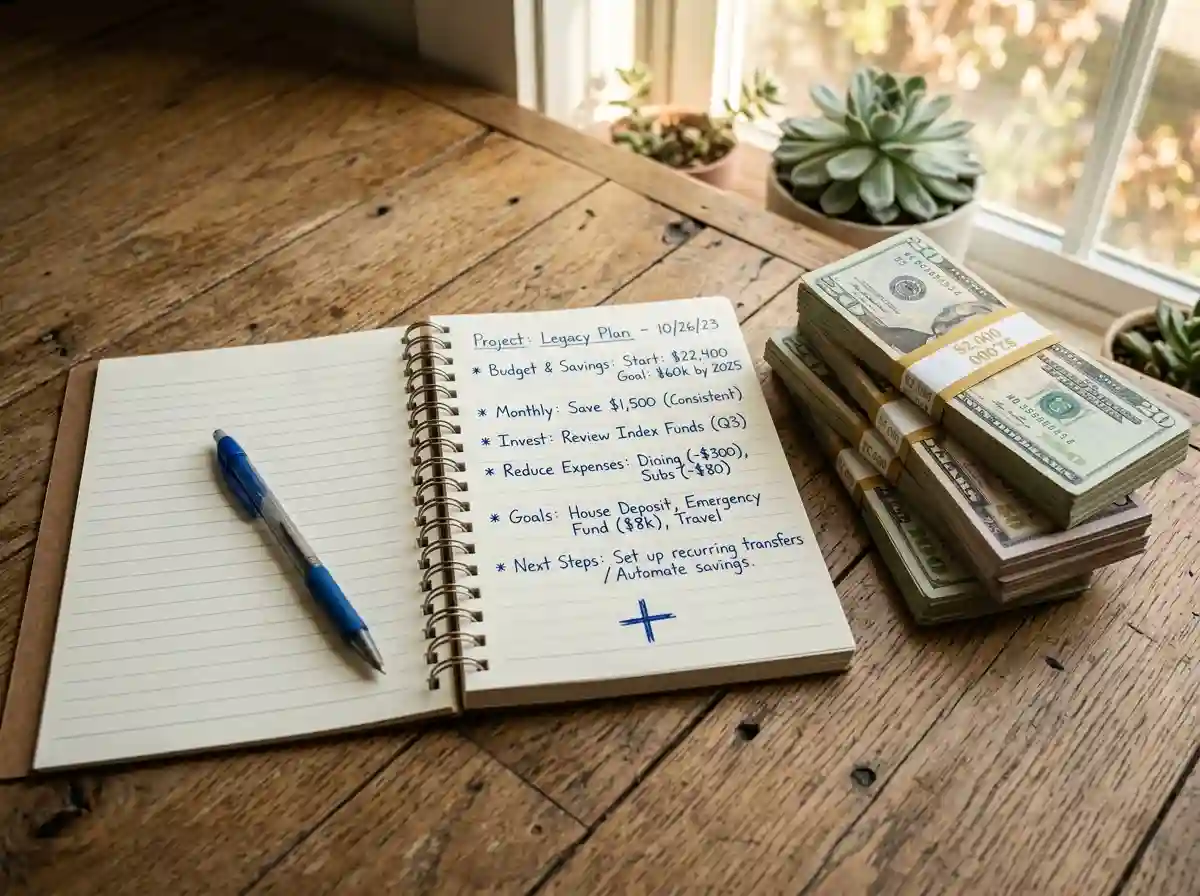 Project: Legacy Plan - 10/26/23
* Budget & Savings: Start: $22,400
Goal: $60k by 2025
* Monthly: Save $1,500 (Consistent)
* Invest: Review Index Funds (Q3)
* Reduce Expenses: Dining (-$300),
Subs (-$80)
* Goals: House Deposit, Emergency
Fund ($8k), Travel
* Next Steps: Set up recurring transfers
/ Automate savings.
+
$2,000
20